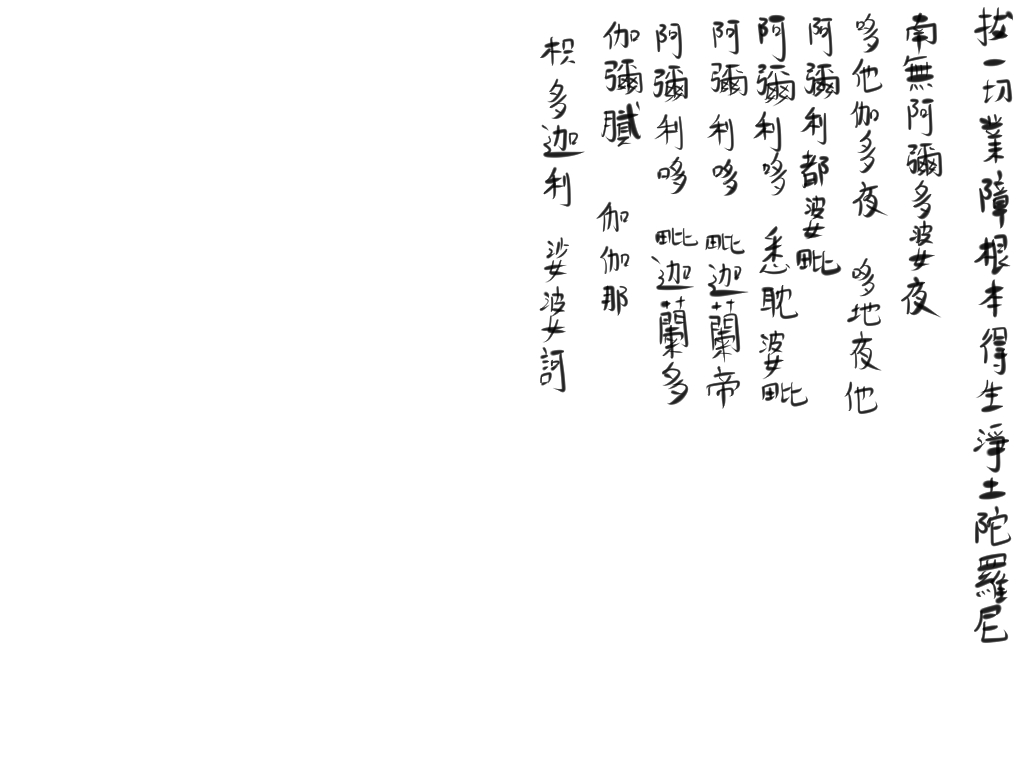 拔一切業障根本得生淨土陀羅尼
南無阿彌多婆夜
哆他伽多夜 哆地夜他
阿彌利都婆毗
阿彌利哆 悉耽婆毗
阿彌利哆 毗迦蘭帝
阿彌利哆 毗迦蘭多
伽彌膩 伽伽那
枳多迦利 娑婆訶